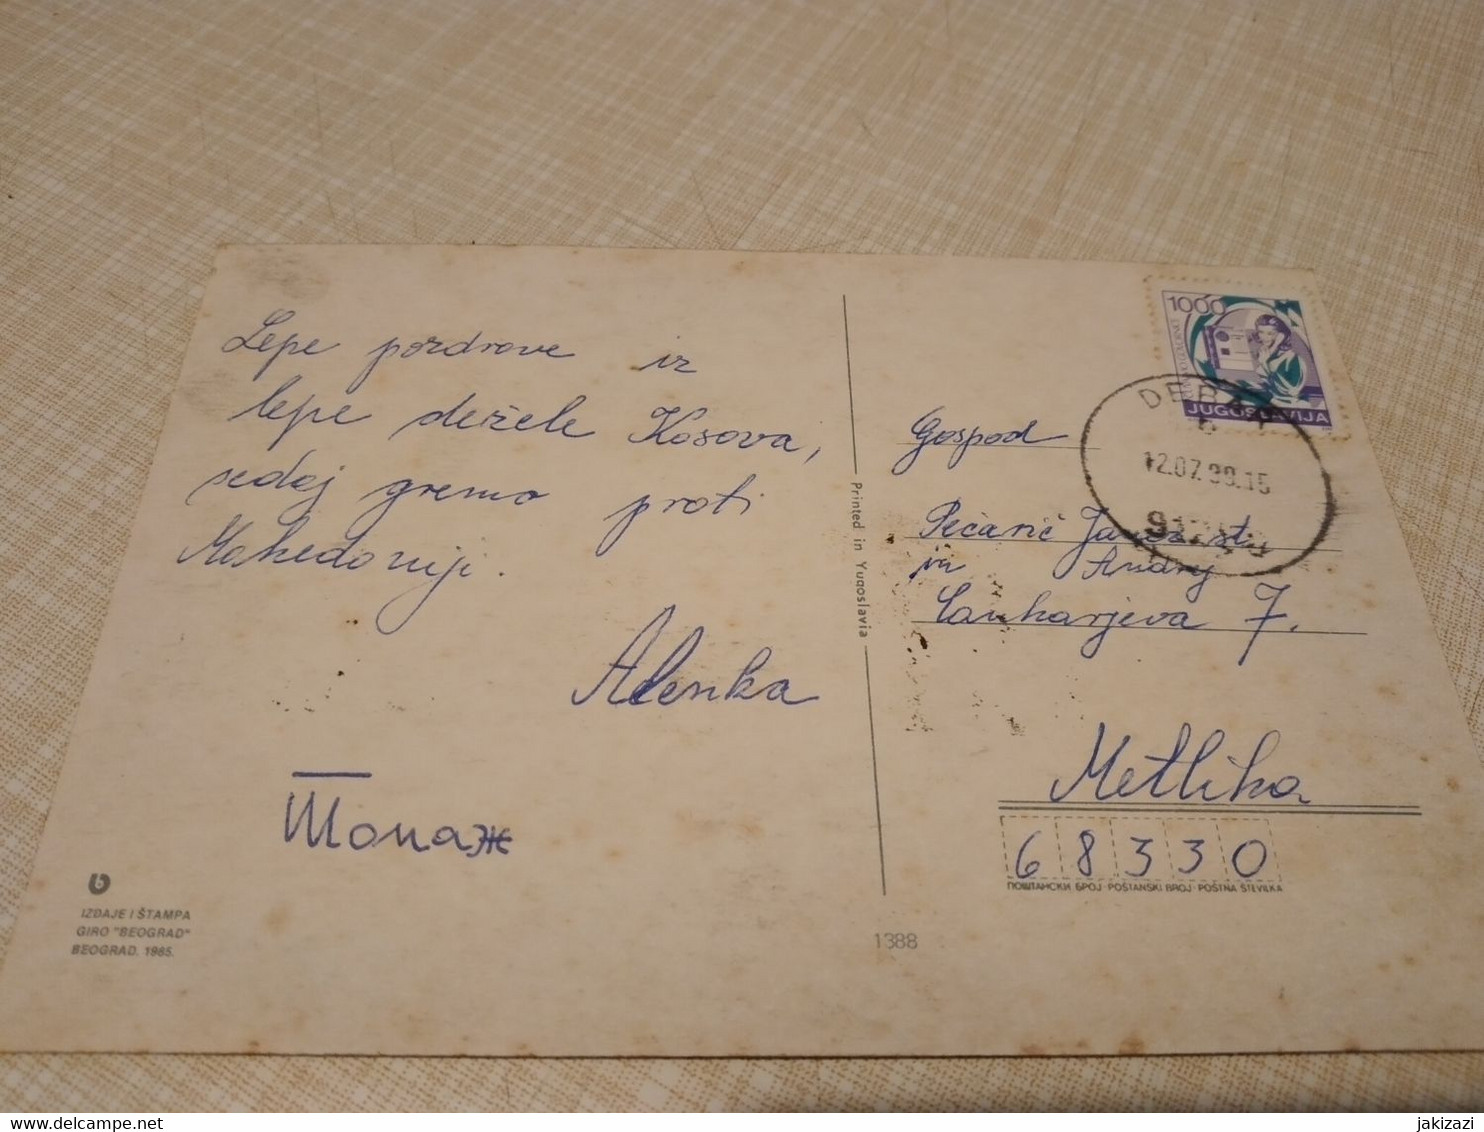 Lepe pozdrove iz
lepe dežele Kosova,
sedaj gremo proti
Makedoniji.
Alenka
Шопаж
IZDAJE I ŠTAMPA
GIRO "BEOGRAD"
BEOGRAD. 1985.
Printed in Yugoslavia
1388
1000
JUGOSLAVIJA
12.07.89.15
Gospod
Pečarič Janez st.
in Andrej
Cankarjeva 7.
Metlika
68330
ПОШТАНСКИ БРОЈ · POŠTANSKI BROJ · POŠTNA ŠTEVILKA
jakizazi
delcampe.net